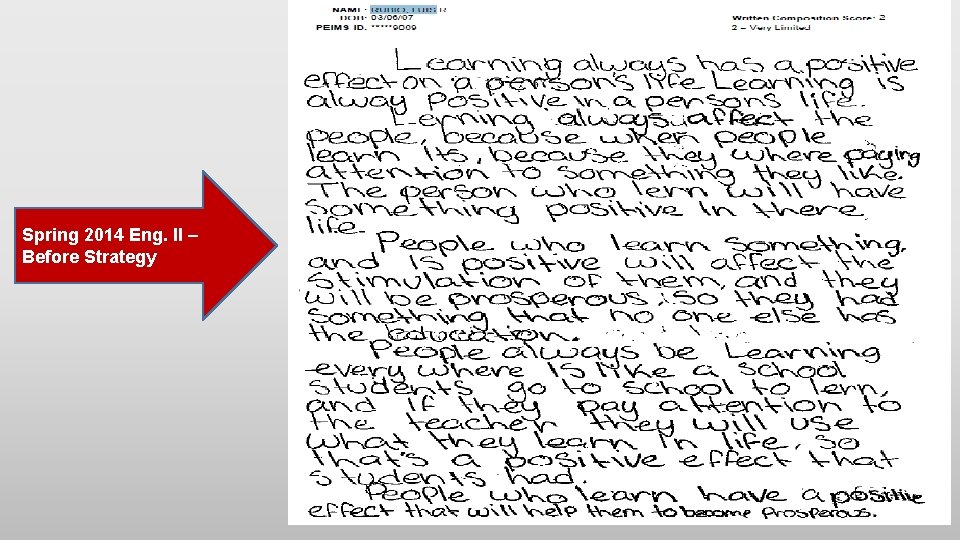 NAME: RUBIO, LUIS R
DOB: 03/06/07
PEIMS ID: *****9009
Written Composition Score: 2
2 – Very Limited
Learning always has a positive
effect on a person's life Learning is
alway Positive in a persons life.
Lerning always affect the
people, because when people
learn Its, because they where paying
attention to something they like.
The person who lern will have
something positive In there
life.
People who learn something,
and Is positive will affect the
Stimulation of them, and they
will be prosperous, so they had
something that no one else has
the education.
People always be Learning
every where Is like a school
students go to school to lern,
and If they pay attention to
the teacher they will use
what they learn In life, so
That's a positive effect that
students had.
People who learn have a positive
effect that will help them to become Prosperous.
Spring 2014 Eng. II –
Before Strategy